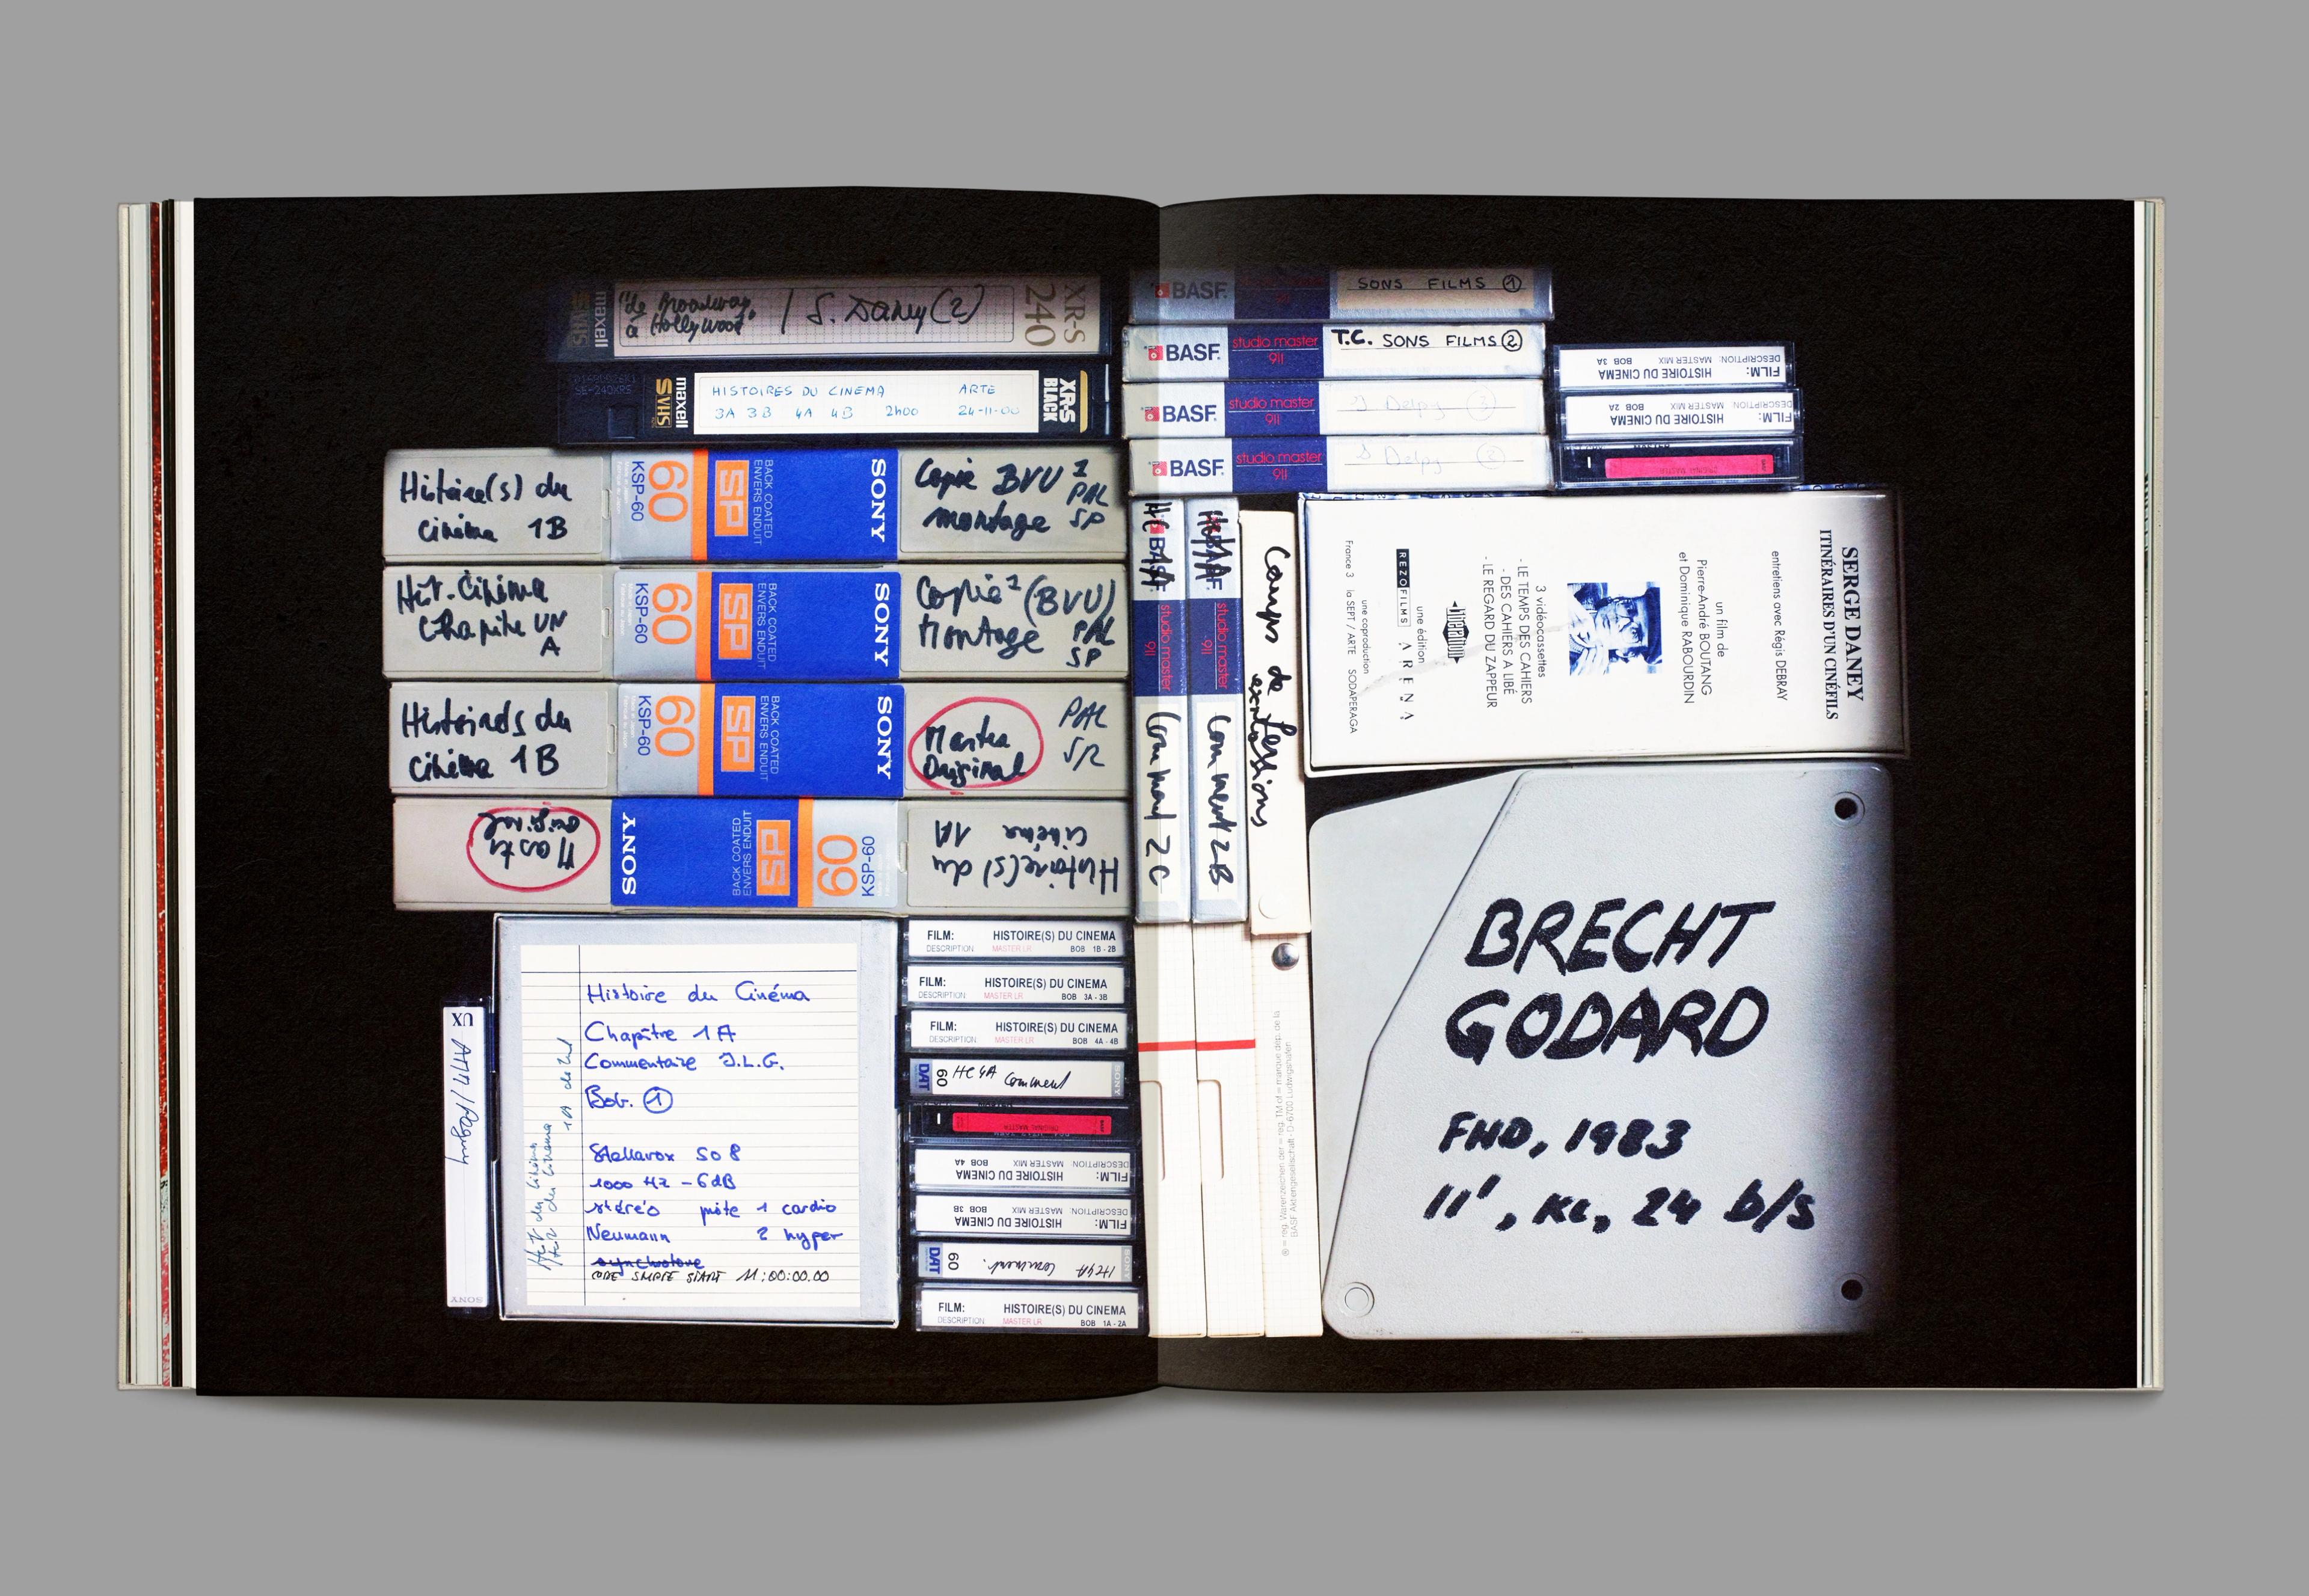 "de Broadway
à Hollywood" / S. Daney (2)
XR-S
240
maxell
SVHS
HISTOIRES DU CINEMA ARTE
3A 3B 4A 4B 2h00 24-11-00
maxell
SVHS
XR-S
BLACK
Histoire(s) du
Cinéma 1B
60
KSP-60
SP
BACK COATED
ENVERS ENDUIT
SONY
Copie BVU 1
montage PAL
SP
Hist. Cinéma
Chapitre UN
A
60
KSP-60
SP
BACK COATED
ENVERS ENDUIT
SONY
Copie 1 (BVU)
Montage PAL
SP
Histoires du
Cinéma 1B
60
KSP-60
SP
BACK COATED
ENVERS ENDUIT
SONY
Master
Original
PAL
SR
Histoire(s) du
Cinéma 1A
60
KSP-60
SP
BACK COATED
ENVERS ENDUIT
SONY
Master
original
UX
SONY
Histoire du Cinéma
Chapître 1A
Commentaire J.L.G.
Bob. 1
Stellavox SO8
1000 Hz - 6dB
stéréo piste 1 cardio
Neumann 2 hyper
CODE SMPTE START 11:00:00.00
FILM: HISTOIRE(S) DU CINEMA
DESCRIPTION MASTER LR BOB 1B - 2B
FILM: HISTOIRE(S) DU CINEMA
DESCRIPTION MASTER LR BOB 3A - 3B
FILM: HISTOIRE(S) DU CINEMA
DESCRIPTION MASTER LR BOB 4A - 4B
DAT 60 HC 4A Comment SONY
ORIGINAL MASTER
FILM: HISTOIRE DU CINEMA
DESCRIPTION: MASTER MIX BOB 4A
FILM: HISTOIRE DU CINEMA
DESCRIPTION: MASTER MIX BOB 3B
DAT 60 HC 4A Comment. SONY
FILM: HISTOIRE(S) DU CINEMA
DESCRIPTION MASTER LR BOB 1A - 2A
BASF SONS FILMS 1
BASF studio master 911 T.C. SONS FILMS 2
BASF studio master 911 J Delpy 3
BASF studio master 911 J Delpy 2
FILM: HISTOIRE DU CINEMA
DESCRIPTION: MASTER MIX BOB 3A
FILM: HISTOIRE DU CINEMA
DESCRIPTION MASTER MIX BOB 2A
ORIGINAL MASTER
HC BASF studio master 911 Comment 2C
BASF studio master 911 Comment 2B
Camps de
SERGE DANEY
ITINÉRAIRES D'UN CINÉFILS
entretiens avec Régis DEBRAY
un film de
Pierre-André BOUTANG
et Dominique RABOURDIN
3 vidéocassettes
- LE TEMPS DES CAHIERS
- DES CAHIERS A LIBÉ
- LE REGARD DU ZAPPEUR
Libération
une édition
REZO FILMS ARENA
une coproduction
France 3 la SEPT / ARTE SODAPERAGA
BRECHT
GODARD
FHD, 1983
11', KL, 24 b/s